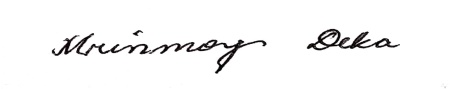 Mrinmoy Deka